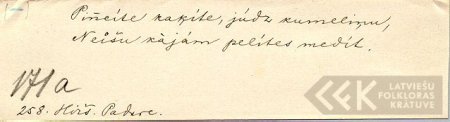 Piņcīte kaķīte, jūdz kumeliņu,
Neišu kājām pelītes medīt.
171a
258. Hirš. Padure.
LATVIEŠU
FOLKLORAS
KRĀTUVE